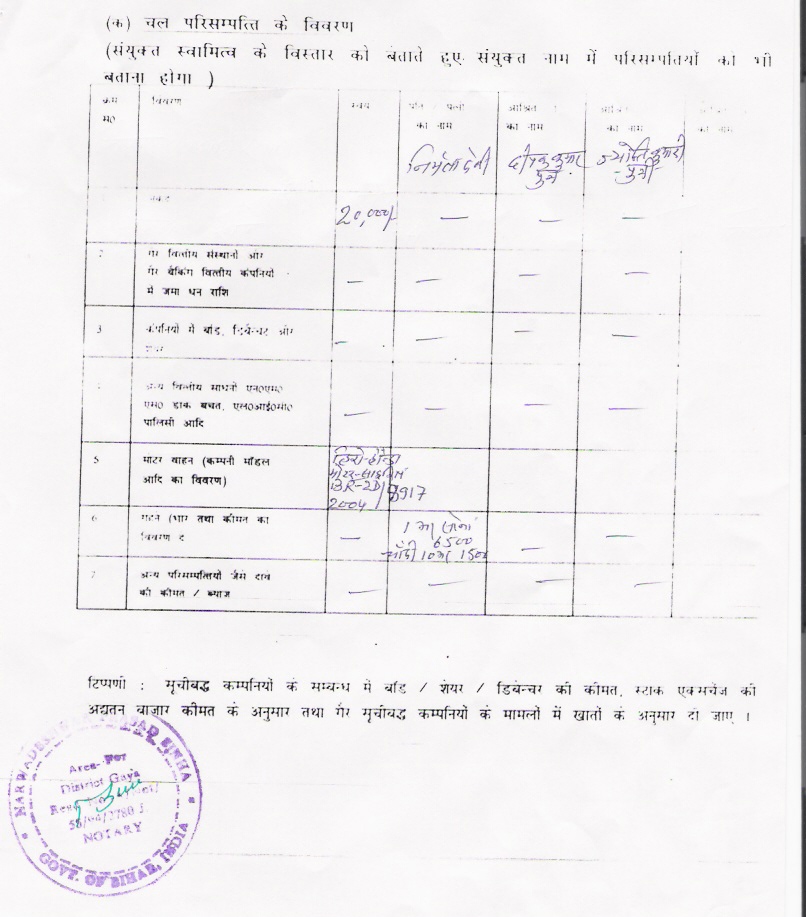 (क) चल परिसम्पत्ति के विवरण
(संयुक्त स्वामित्व के विस्तार को बताते हुए संयुक्त नाम में परिसम्पतियों का भी
बताना होगा )
क्रम विवरण स्वयं पति पत्नी आश्रित
स० का नाम का नाम का नाम का नाम
निर्मला देवी कुमार ज्योति कुमारी
पुत्र पुत्री
नकद 20,000/- — — —
2 गैर वित्तीय संस्थानों और
गैर बैंकिंग वित्तीय कंपनियों — — — —
में जमा धन राशि
3 कंपनियों में बांड, डिबेन्चर और — — — —
अन्य वित्तीय साधनों एन०एस०
एस० डाक बचत, एल०आई०सी० — — — —
पालिसी आदि
5 मोटर वाहन (कम्पनी मॉडल हिरो-होन्डा
आदि का विवरण) मोटर-साइकिल
BR-2D/8917
2004
6 गहने (भार तथा कीमत का — 1 भर सोना — —
विवरण दें 6500
चाँदी 10 भर 1500
7 अन्य परिसम्पत्तियों जैसे दावे — — — —
की कीमत / ब्याज
टिप्पणी : सूचीबद्ध कम्पनियों के सम्बन्ध में बॉंड / शेयर / डिबेन्चर की कीमत, स्टाक एक्सचेंज की
अद्यतन बाजार कीमत के अनुसार तथा गैर सूचीबद्ध कम्पनियों के मामलों में खातों के अनुसार दी जाए ।
SINHA
Area- For
District Gaya
NOTARY
GOVT. OF BIHAR, INDIA